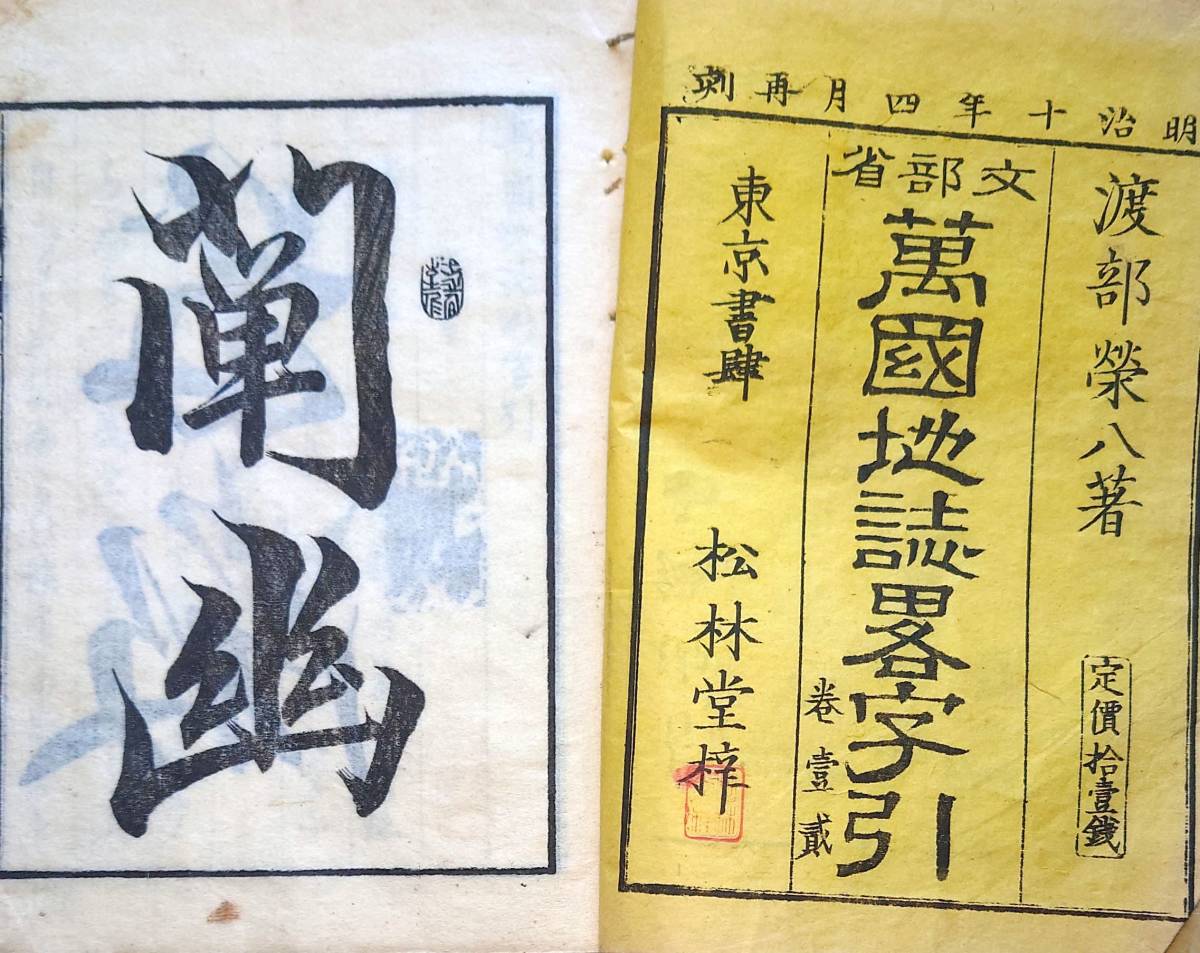 明治十年四月再刻
渡部榮八著
定價拾壹錢
文部省
萬國地誌畧字引
卷壹貳
東京書肆
松林堂梓
闡幽